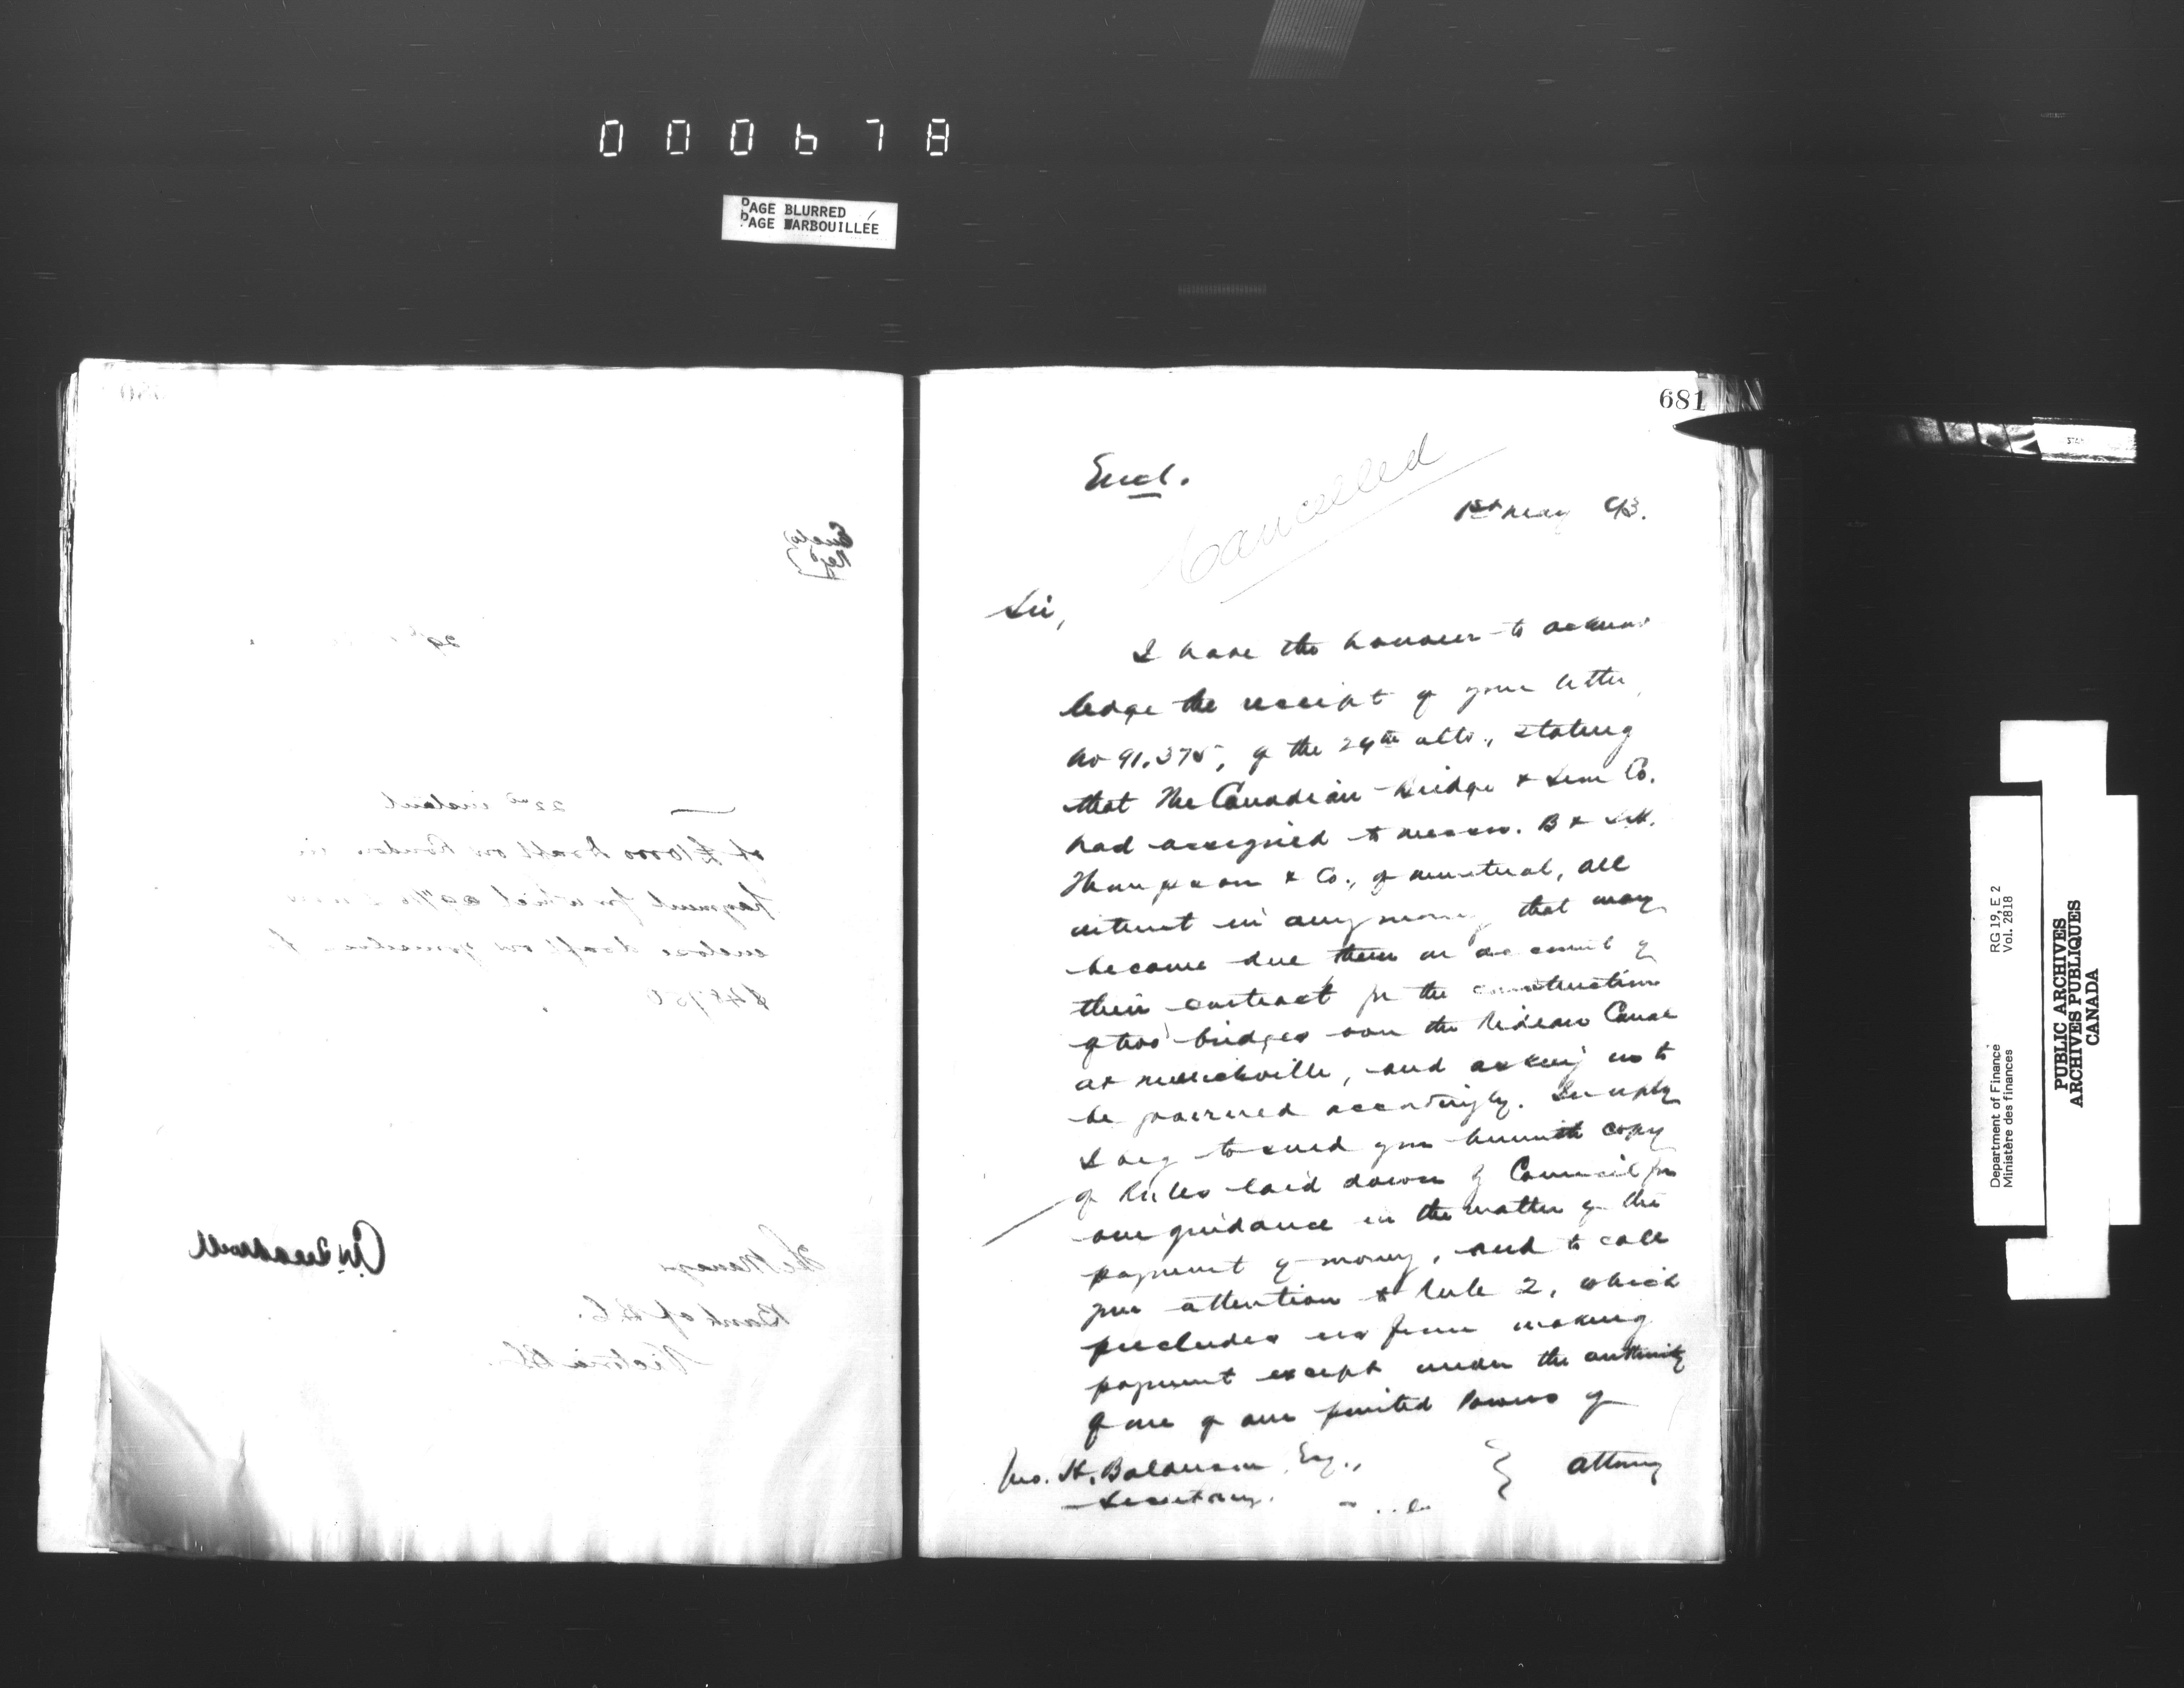 000678
PAGE BLURRED
PAGE BARBOUILLÉE
22nd instant
of £10000 draft on London in
payment for which
enclose draft on yourselves for
$48
The Manager
Bank of B.C.
Victoria B.C.
681
Encl.
Cancelled
1st May 93.
Sir,
I have the honour to acknow
ledge the receipt of your letter,
No 91.375, of the 29th ulto., stating
that The Canadian Bridge & Iron Co.
had assigned to Messrs. B &
Thompson & Co., of Montreal, all
interest in any money that may
become due them on account of
their contract for the construction
of two bridges over the Rideau Canal
at Merrickville, and asking us to
be governed accordingly. In reply
I beg to send you herewith copy
of Rules laid down by Council for
our guidance in the matter of the
payment of money, and to call
your attention to Rule 2, which
precludes us from making
payment except under the authority
of one of our printed Powers of
Jno. H. Balderson Esq., } attorney
Secretary.
RG 19, E 2
Vol. 2818
Department of Finance
Ministère des finances
PUBLIC ARCHIVES
ARCHIVES PUBLIQUES
CANADA